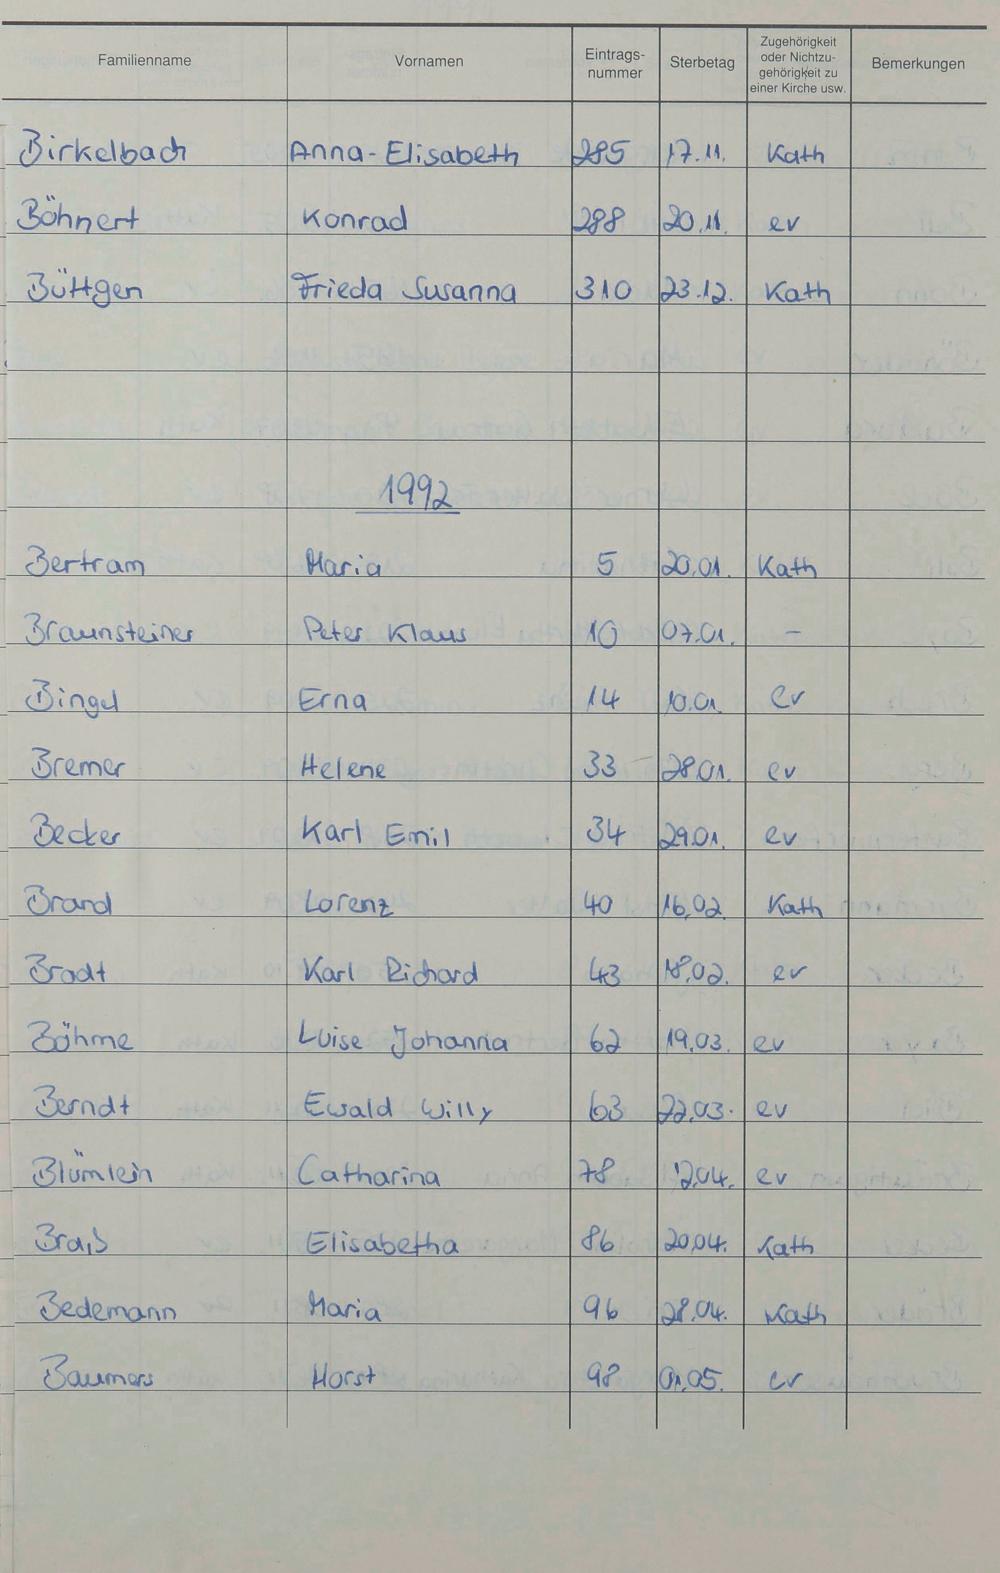 Familienname Vornamen Eintrags-nummer Sterbetag Zugehörigkeit oder Nichtzu-gehörigkeit zu einer Kirche usw. Bemerkungen
Birkelbach Anna-Elisabeth 285 17.11. Kath
Böhnert Konrad 288 20.11. ev
Büttgen Frieda Susanna 310 23.12. Kath
1992
Bertram Maria 5 20.01. Kath
Braunsteiner Peter Klaus 10 07.01. –
Bingel Erna 14 10.01. ev
Bremer Helene 33 28.01. ev
Becker Karl Emil 34 29.01. ev
Brand Lorenz 40 16.02. Kath
Bradt Karl Richard 43 18.02. ev
Böhme Luise Johanna 62 19.03. ev
Berndt Ewald Willy 63 22.03. ev
Blümlein Catharina 78 12.04. ev
Elisabetha 86 20.04. Kath
Bedemann Maria 96 28.04. Kath
Baumers Horst 98 01.05. ev